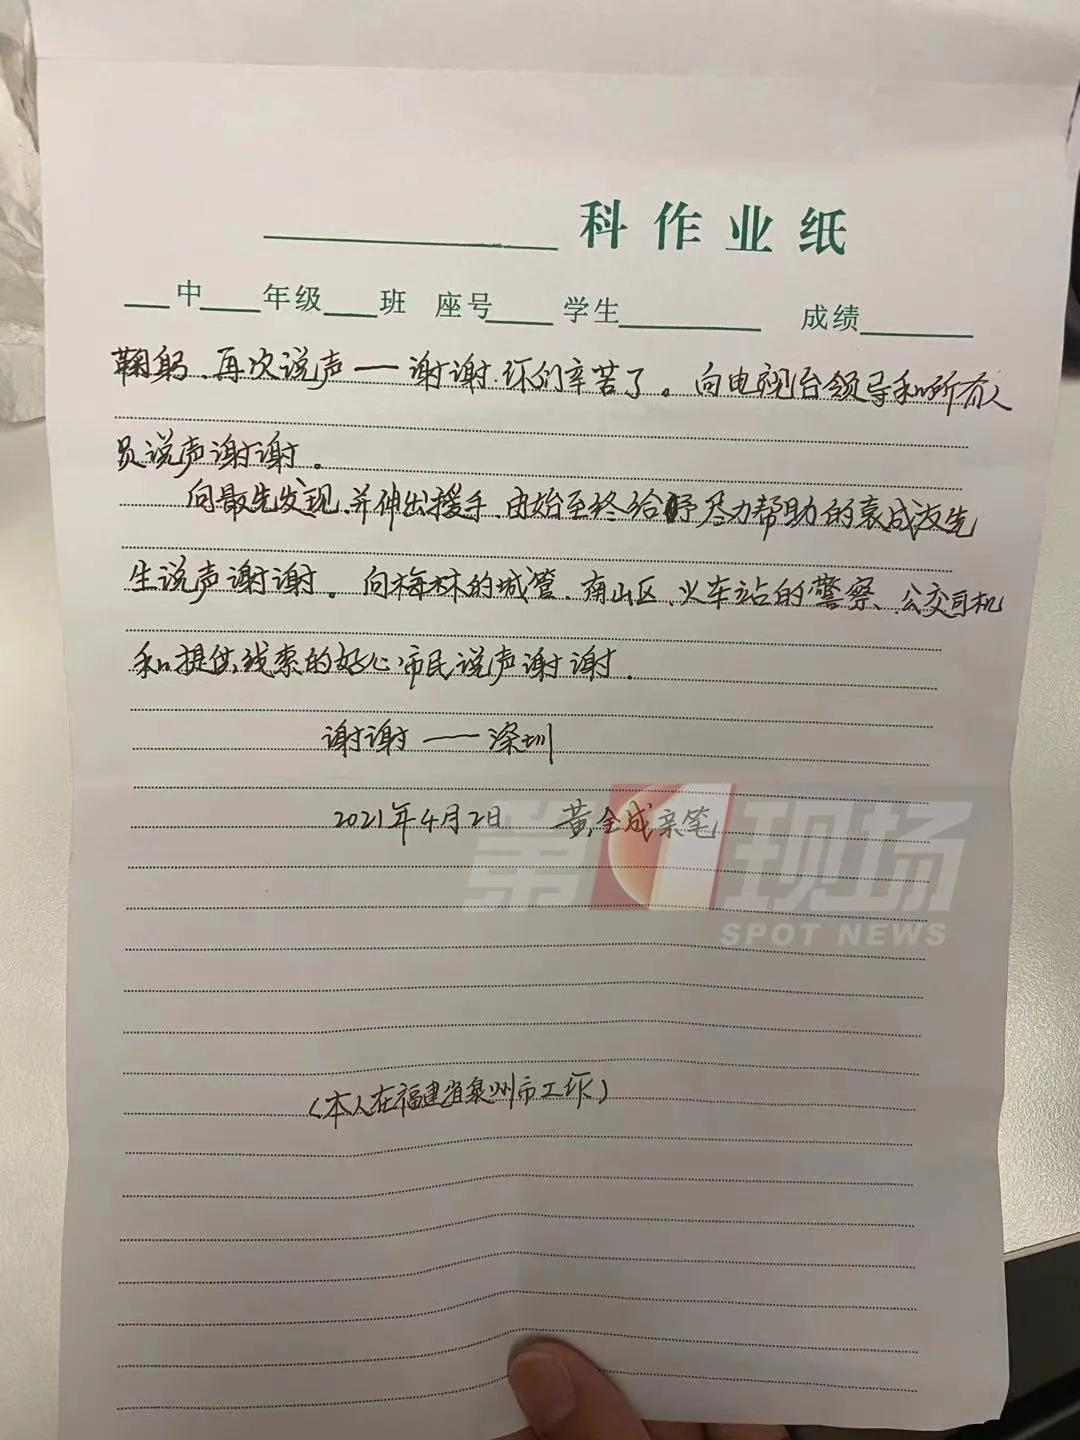 科作业纸
中 年级 班 座号 学生 成绩
鞠躬、再次说声——谢谢.你们辛苦了。向电视台领导和所有人
员说声谢谢。
向最先发现、并伸出援手、由始至终给予尽力帮助的袁成波先
生说声谢谢。向梅林的城管、南山区、火车站的警察、公交司机
和提供线索的好心市民说声谢谢.
谢谢——深圳
2021年4月2日 黄全成亲笔
第1现场
SPOT NEWS
(本人在福建省泉州市工作)